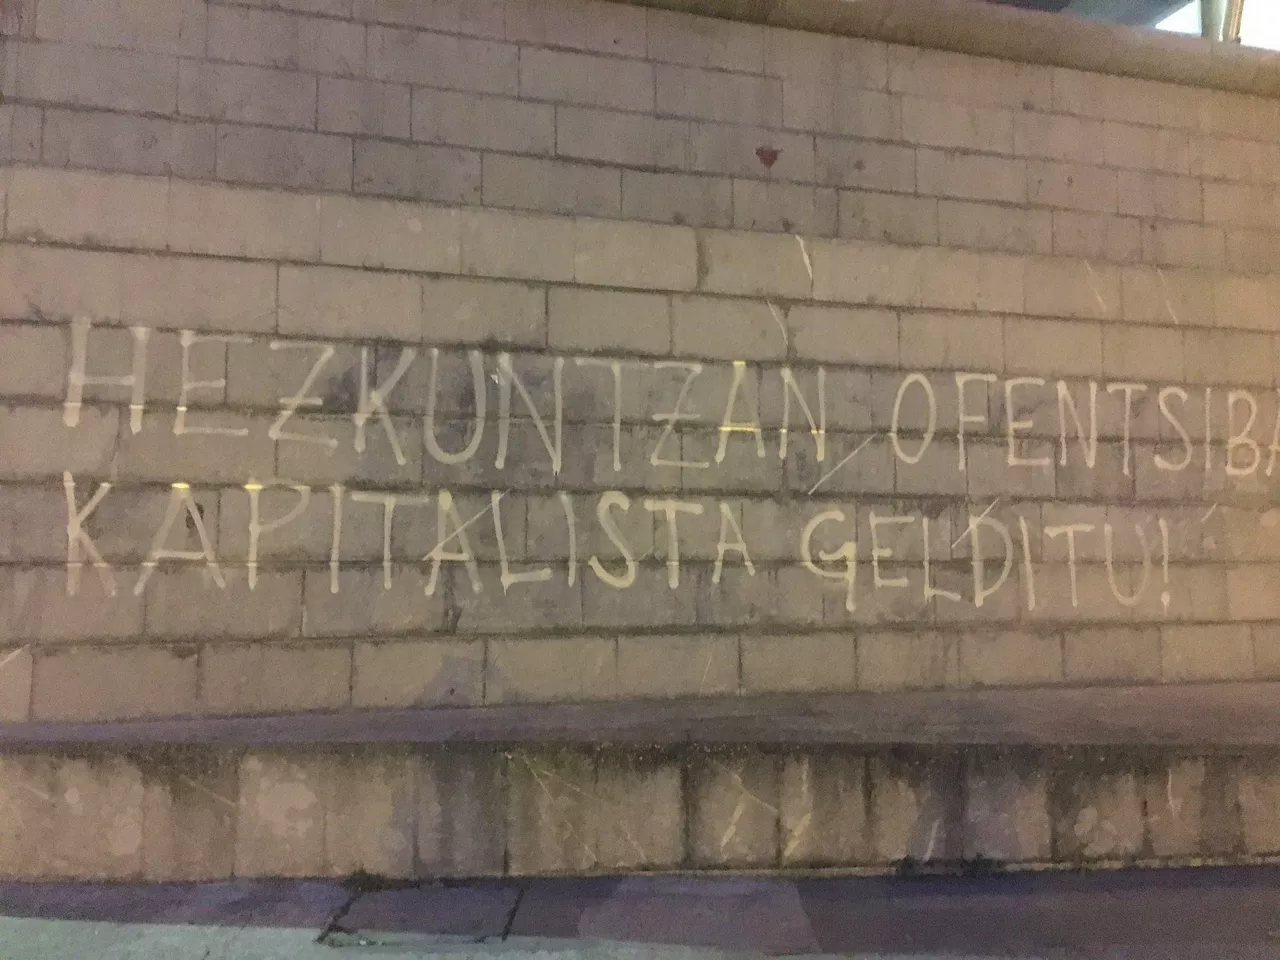 HEZKUNTZAN OFENTSIBA
KAPITALISTA GELDITU!